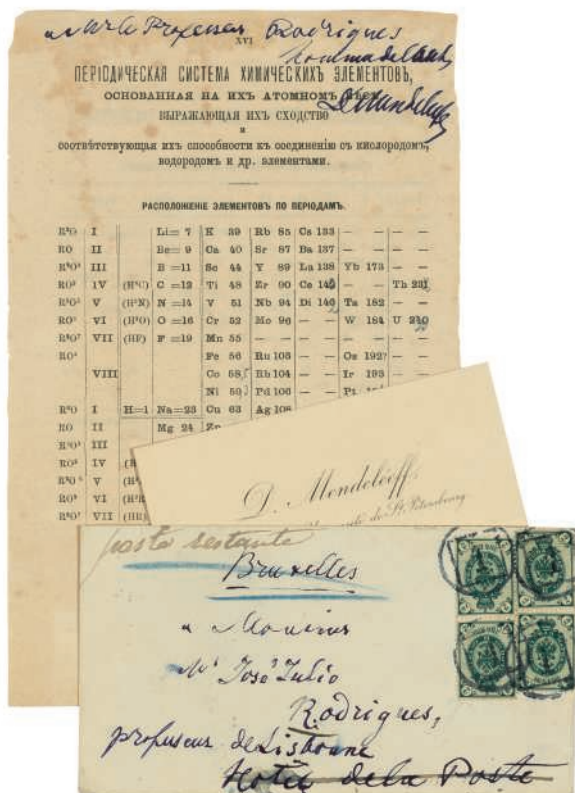 a Mr le Professeur Rodrigues
XVI
hommage de l'aut.
ПЕРІОДИЧЕСКАЯ СИСТЕМА ХИМИЧЕСКИХЪ ЭЛЕМЕНТОВЪ,
ОСНОВАННАЯ НА ИХЪ АТОМНОМЪ ВѢСѢ
D. Mendeleeff
ВЫРАЖАЮЩАЯ ИХЪ СХОДСТВО
и
соотвѣтствующая ихъ способности къ соединенію съ кислородомъ,
водородомъ и др. элементами.
РАСПОЛОЖЕНІЕ ЭЛЕМЕНТОВЪ ПО ПЕРІОДАМЪ.
R²O I Li= 7 K 39 Rb 85 Cs 133 — — — —
RO II Be= 9 Ca 40 Sr 87 Ba 137 — — — —
R²O³ III B =11 Sc 44 Y 89 La 138 Yb 173 — —
RO² IV (H⁴C) C =12 Ti 48 Zr 90 Ce — — Th
R²O⁵ V (H³N) N =14 V 51 Nb 94 Di Ta 182 — —
RO³ VI (H²O) O =16 Cr 52 Mo 96 — — W 184 U
R²O⁷ VII (HF) F =19 Mn 55 — — — — — — — —
RO⁴ Fe 56 Ru 103 — — Os 192? — —
VIII Co Rh 104 — — Ir 193 — —
Ni Pd 106 — — Pt
R²O I H=1 Na=23 Cu 63 Ag 108
RO II Mg 24 Zn
R²O³ III
RO² IV
R²O⁵ V
RO³ VI
R²O⁷ VII
D. Mendeléeff,
de St. Pétersbourg
poste restante
Bruxelles
a Monsieur
Mr José Julio
Rodrigues,
professeur de Lisbonne
Hotel de la Poste